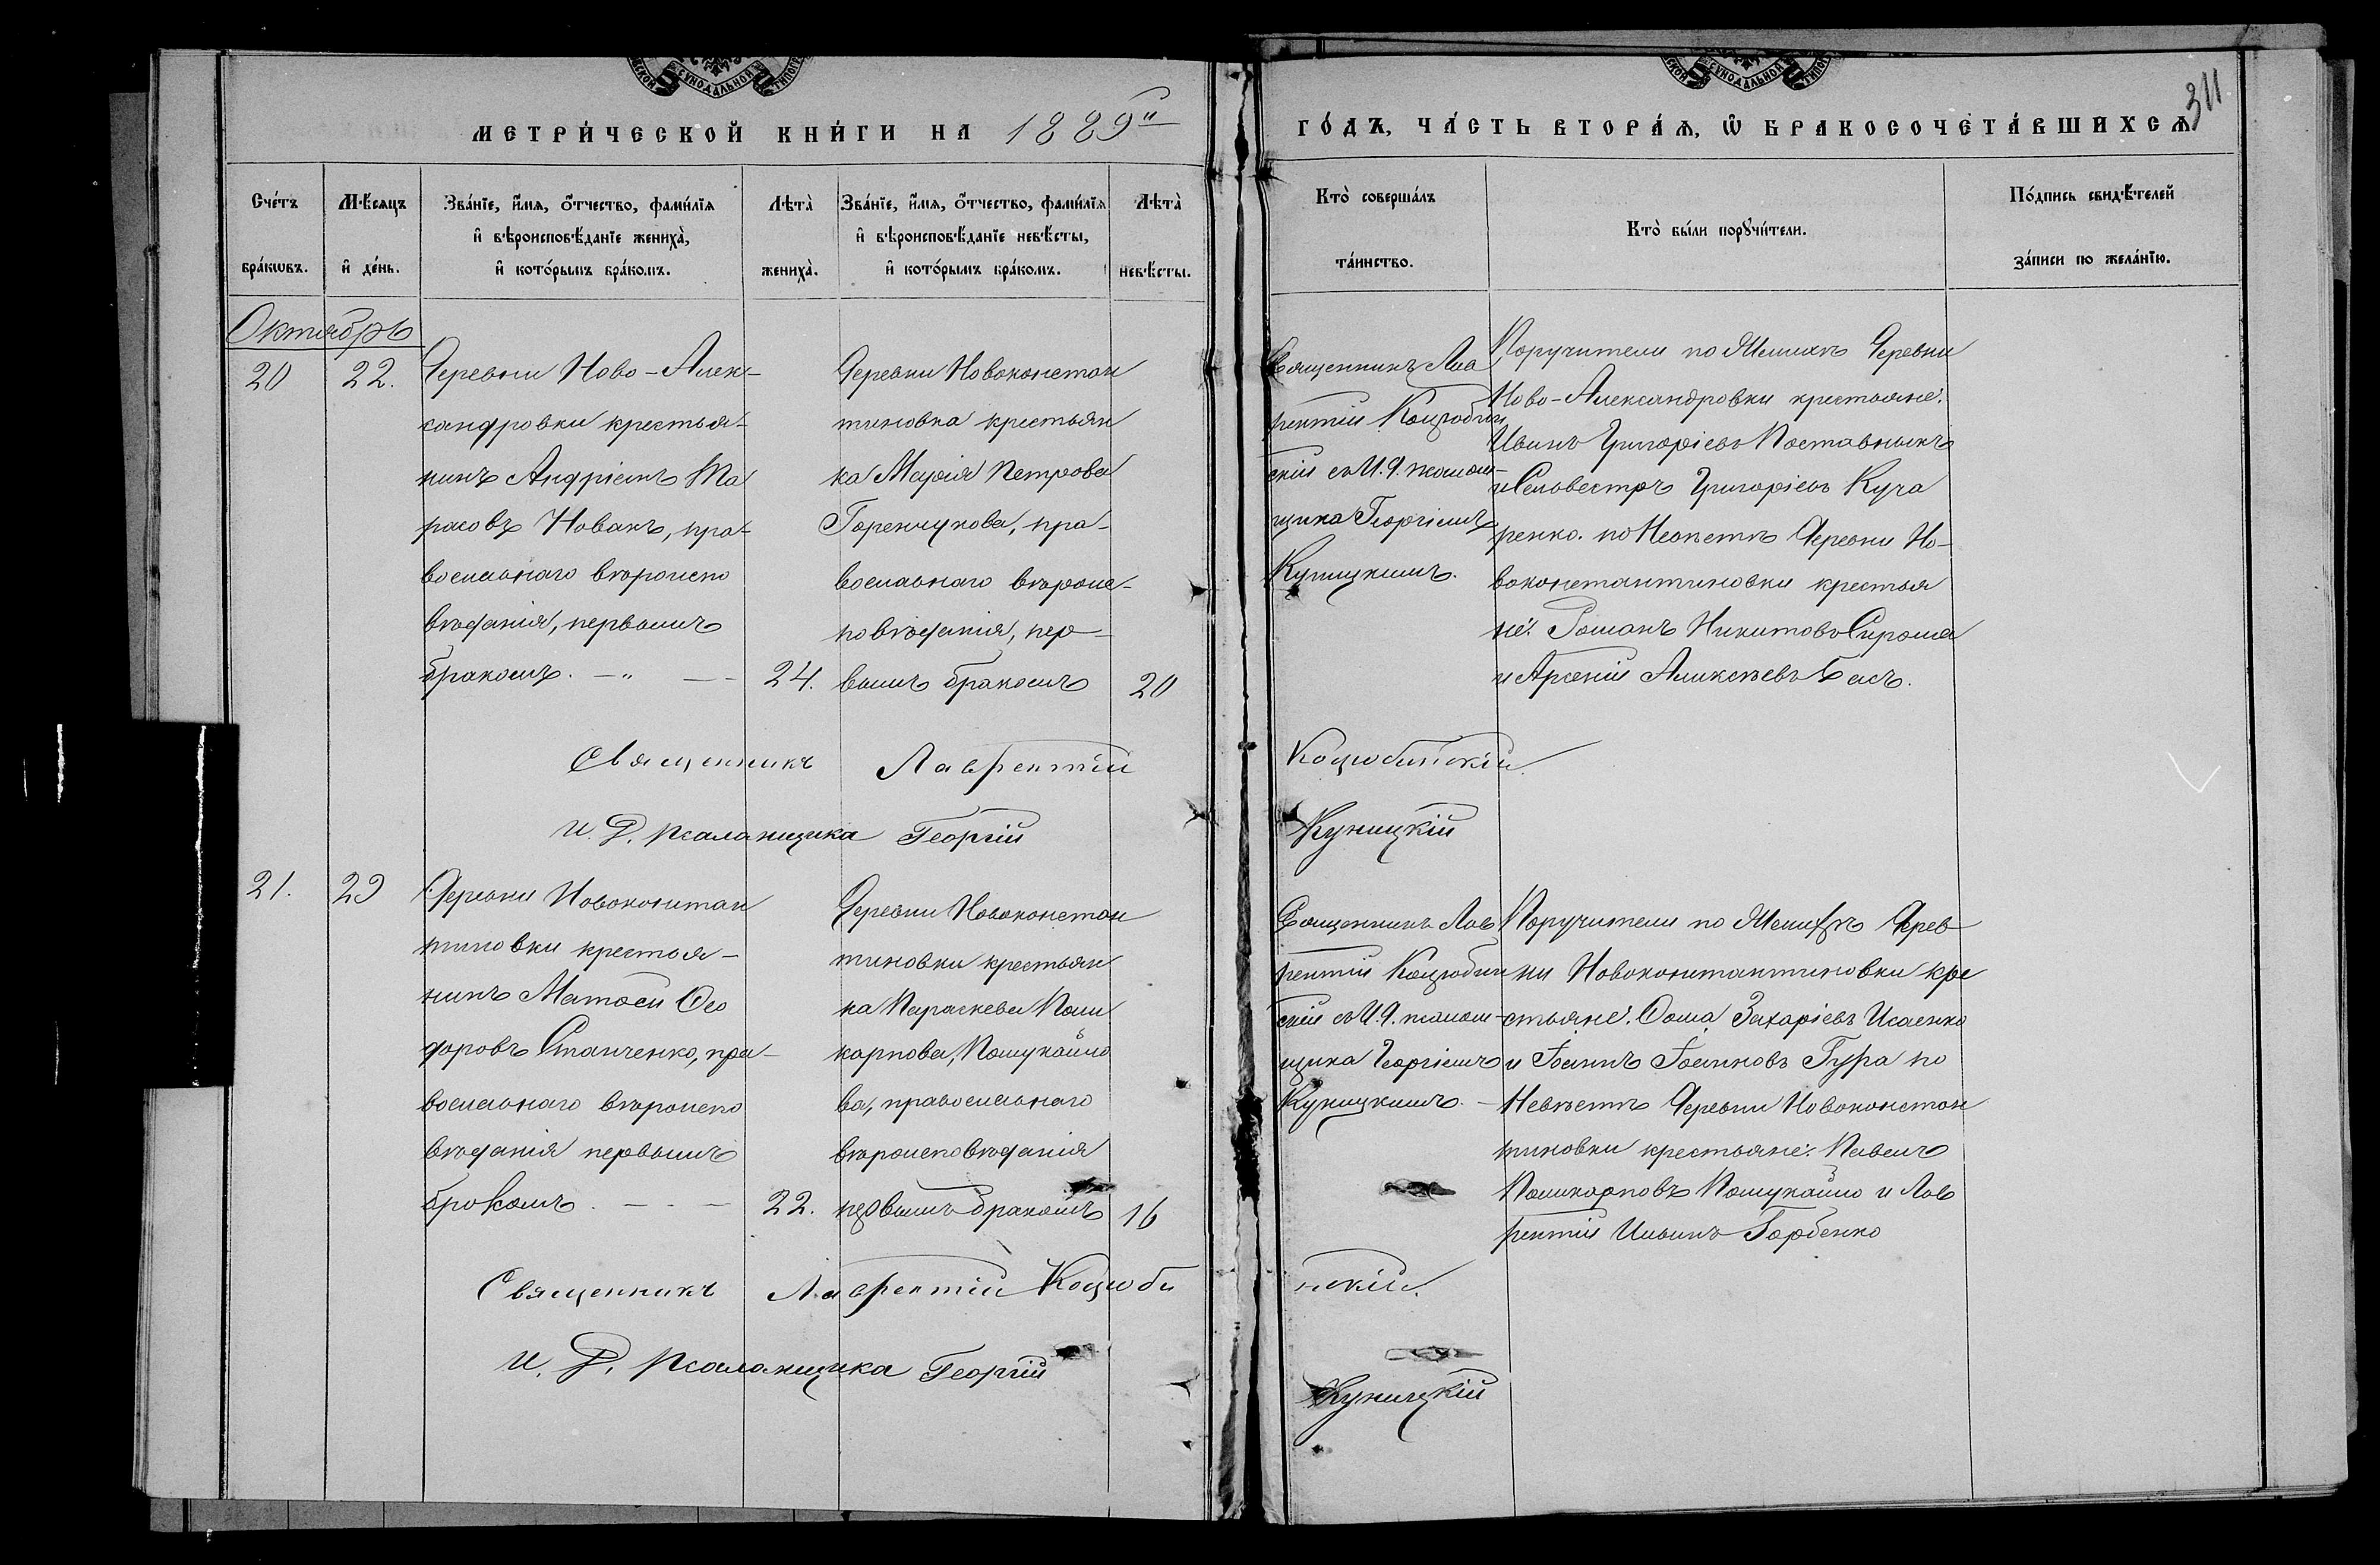 МЕТРИ́ЧЕСКОЙ КНИ́ГИ НА 1889й
ГО́ДЪ, ЧА́СТЬ ВТОРА́Ѧ, Ѽ БРАКОСОЧЕТА́ВШИХСѦ
311
Сче́тъ
бра́кѡвъ.
Мѣ́сяцъ
и҆ де́нь.
Зва́нїе, и҆́мѧ, ѻ҆́тчество, фами́лїѧ
и҆ вѣроисповѣ́данїе жениха̀,
и҆ кото́рымъ бра́комъ.
Лѣта̀
жениха̀.
Зва́нїе, и҆́мѧ, ѻ҆́тчество, фами́лїѧ
и҆ вѣроисповѣ́данїе невѣ́сты,
и҆ кото́рымъ бра́комъ.
Лѣта̀
невѣ́сты.
Кто̀ соверша́лъ
та́инство.
Кто̀ бы́ли порꙋчи́тели.
По́дпись свидѣ́телей
за́писи по жела́нїю.
Октябрь
20
22.
Деревни Ново-Алек-
сандровки крестья-
нинъ Андріанъ Та
расовъ Новакъ, пра-
вославнаго вѣроиспо
вѣданія, первымъ
бракомъ. — " —
24.
Деревни Новоконстан
тиновка крестьян
ка Марія Петрова
Горенчукова, пра-
вославнаго вѣроис-
повѣданія, пер-
вымъ бракомъ
20
Священникъ Лав
рентій Коцюбин
скій съ И. Д. псалом-
щика Георгіемъ
Куницкимъ.
Поручители по Женихѣ Деревни
Ново-Александровки крестьяне:
Иванъ Григорієвъ Поставныкъ
и Сельвестръ Григорієвъ Куча
ренко. по Невѣстѣ Деревни Но-
воконстантиновки крестья
не: Романъ Никитовъ Сирота
и Арсеній Аликсѣевъ Басъ.
Священникъ Лаврентій Коцюбинскій
И. Д. псаломщика Георгій Куницкій
21.
29
Деревни Новоконстан
тиновки крестья-
нинъ Матѳей Ѳео
доровъ Станченко, пра-
вославнаго вѣроиспо
вѣданія первымъ
бракомъ. — — —
22.
Деревни Новоконстан
тиновки крестьян
ка Параскева Поли
карпова, Пошукайло
ва, православнаго
вѣроисповѣданія
первымъ бракомъ
16
Священникъ Лав
рентій Коцюбин
скій съ И. Д. псалом-
щика Георгіемъ
Куницкимъ. —
Поручители по Женихѣ Дерев-
ни Новоконстантиновки кре
стьяне: Ѳома Захаріевъ Исаенко
и Іоаннъ Іоанновъ Гура по
Невѣстѣ Деревни Новоконстан
тиновки крестьяне: Павелъ
Поликарповъ Пошукайло и Лав
рентій Ильинъ Горбенко
Священникъ Лаврентій Коцюбинскій.
И. Д. псаломщика Георгій Куницкій